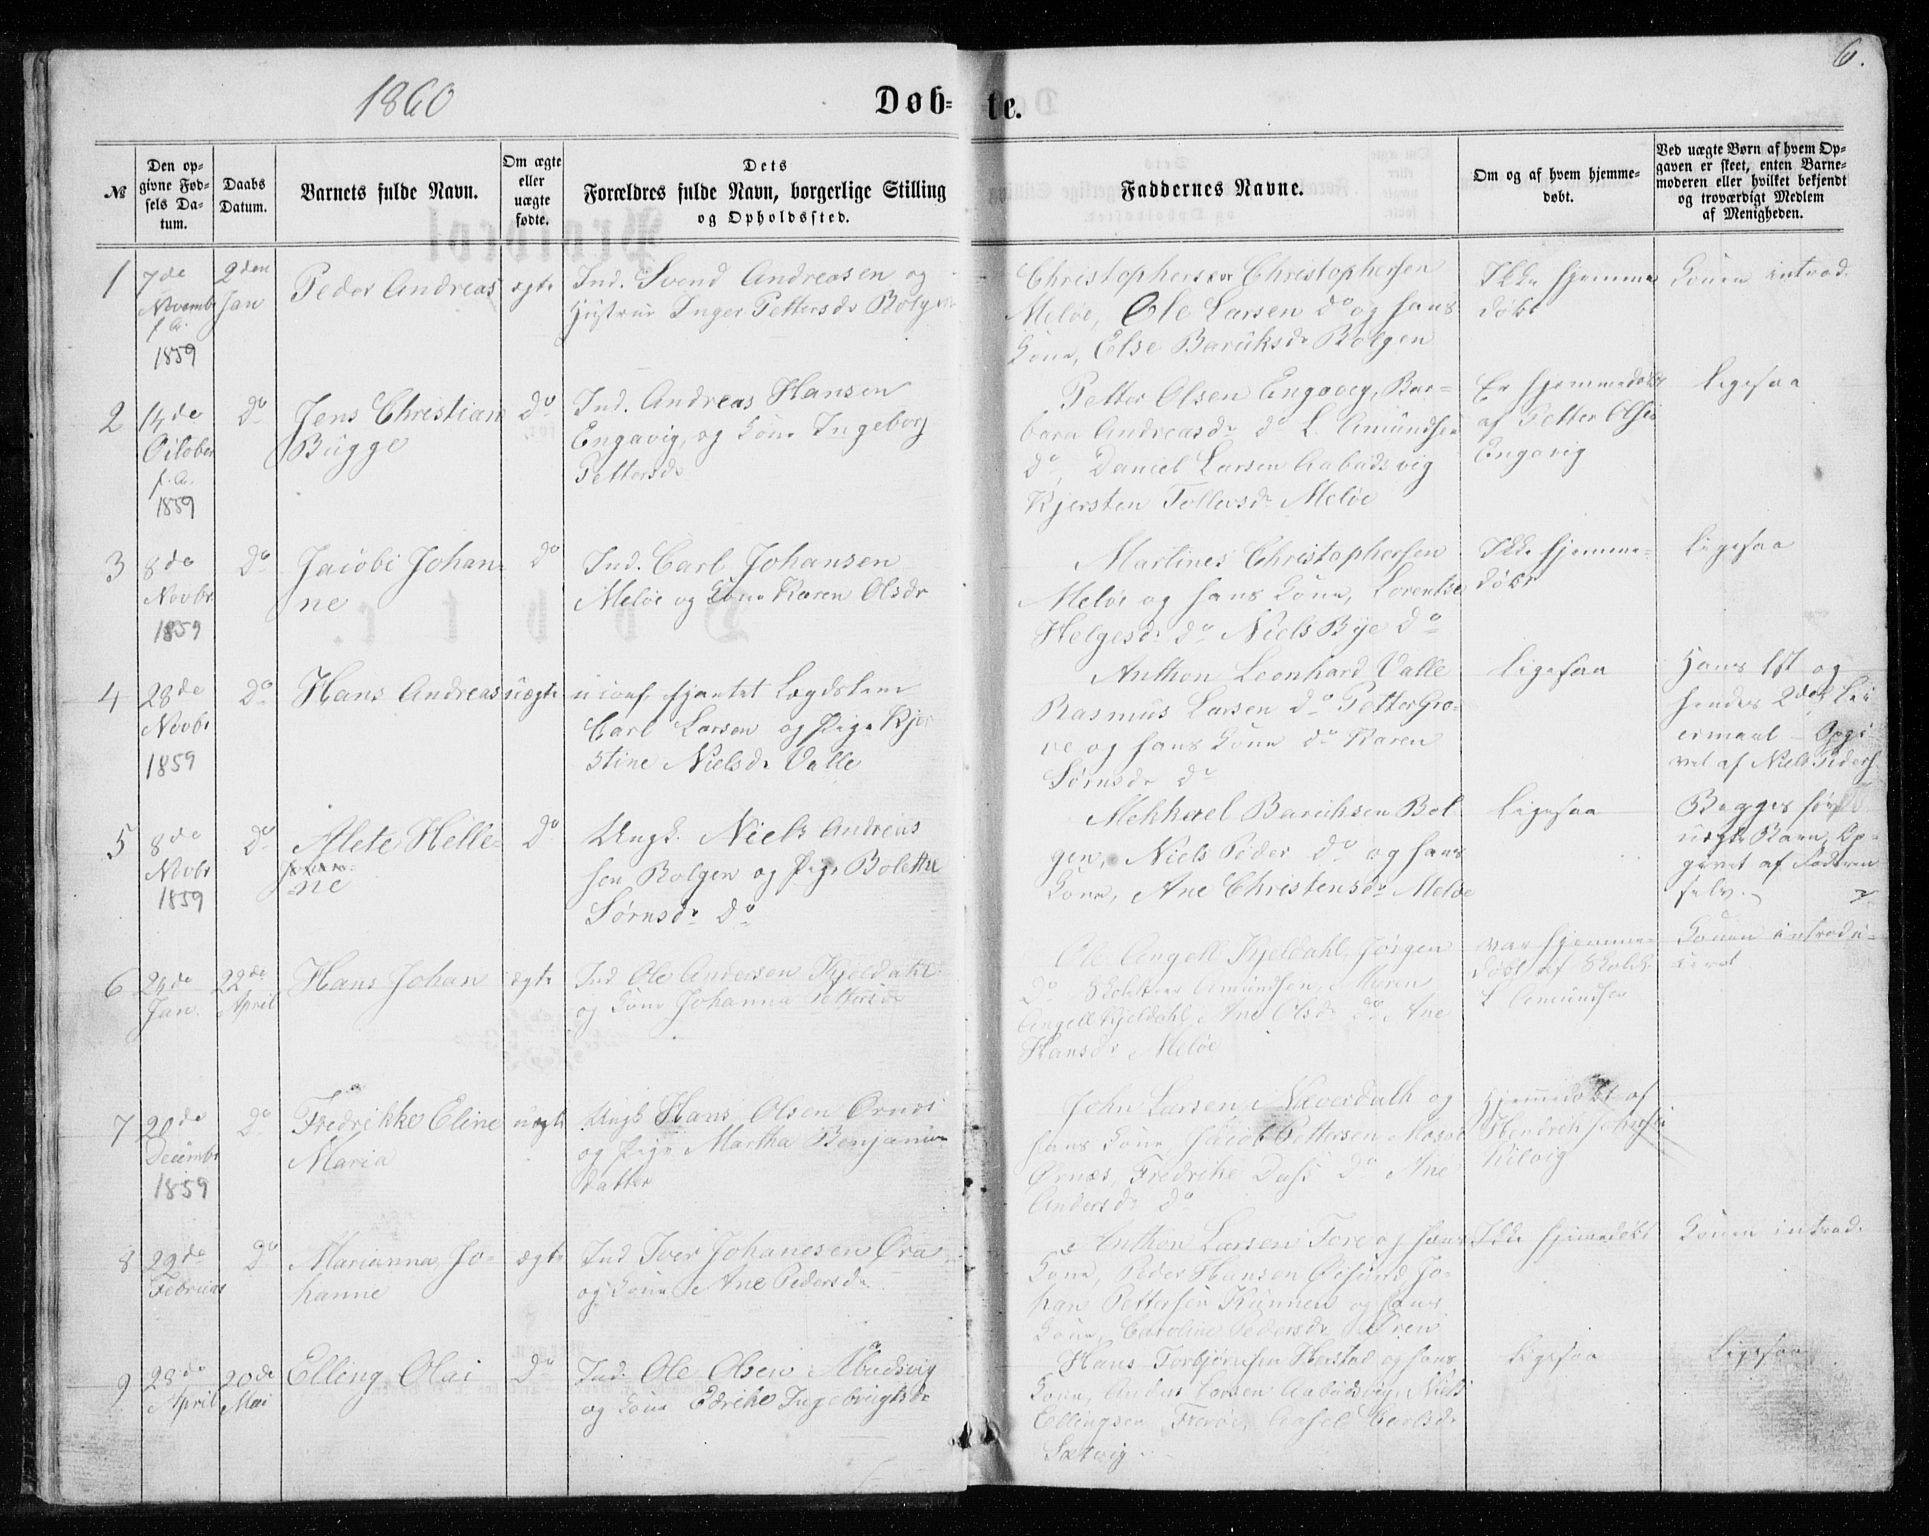 1860
Døb-te.
6.
№
Den op-
givne Fød-
sels Da-
tum.
Daabs
Datum.
Barnets fulde Navn.
Om ægte
eller
uægte
fødte.
Dets
Forældres fulde Navn, borgerlige Stilling
og Opholdssted.
Faddernes Navne.
Om og af hvem hjemme-
døbt.
Ved uægte Børn af hvem Op-
gaven er skeet, enten Barne-
moderen eller hvilket bekjendt
og troværdigt Medlem
af Menigheden.
1
7de
Novemb
f. A.
1859
9den
Jan
Peder Andreas
ægte
Ind. Svend Andreasen og
Hustrue Inger Pettersdr Bolgen
Christophersen Christophersen
Meløe, Ole Larsen do og hans
Kone, Else Baruksdr Bolgen
Ikke hjemme
døbt
Konen introd.
2
14de
October
f. A.
1859
Do
Jens Christian
Bugge
Do
Ind. Andreas Hansen
Engavig, og Kone Ingeborg
Pettersdr
Petter Olsen Engavig, Bar-
bara Andreasdr do L. Amundsen
Do, Daniel Larsen Aabødsvig
Kjersten Tollevsdr Meløe
Er hjemmedøbt
af Petter Olsen
Engavig
Ligesaa
3
8de
Novbr
1859
Do
Jacobi Johan-
ne
Do
Ind. Carl Johansen
Meløe og Kone Karen Olsdr
Martines Christophersen
Meløe og hans Kone, Lorentse
Helgesdr do Niels Bye Do
Ikke hjemme-
døbt
Ligesaa
4
28de
Novbr
1859
Do
Hans Andreas
uægte
uconf. Lægdslem
Carl Larsen og Pige Kjer
stine Nielsdr Valle
Anthon Leonhard Valle
Rasmus Larsen Do Petter Gre-
ve og hans Kone do Karen
Sørnsdr do
Ligesaa
Hans 1st og
hendes 2det Lei
ermaal Opgi-
vet af Niels Peders.
5
8de
Novbr
1859
Do
Alete Helle-
ne
Do
Ungk. Niels Andreas
sen Bolgen og Pige Bolette
Sørnsdr Do
Mekkael Baruksen Bol
gen, Niels Peder do og hans
Kone, Ane Christensdr Meløe
Ligesaa
Begges første
uægte Barn, Op-
givet af Faderen
selv.
6
24de
Jan.
22de
April
Hans Johan
ægte
Ind Ole Andersen Kjeldahl
og Kone Johanna Pettersdr
Ole Angell Kjeldahl, Jørgen
Do Amundsen, Maren
Angell Kjeldahl, Ane Olsdr do, Ane
Hansdr Meløe
var hjemme-
døbt af Skolel.
L Amundsen
Konen introdu-
ceret
7
20de
Decembr
1859
Do
Fredrikke Eline
Maria
uægte
Ungk Hans Olsen Ørnes
og Pige Martha Benjamin
datter
John Larsen Neverdalh og
hans Kone Jacob Pettersen Mosvo
Ørnes, Fredrike Dass Do Ane
Andersdr do
Hjemmedøbt af
Hendrik Johansen
Kilvig
8
29de
Februar
Do
Marianna Jo-
hanne
ægte
Ind Iver Johanesen Øra
og Kone Ane Pedersdr
Anthon Larsen Tore og hans
Kone, Peder Hansen Øesund Jo-
han Pettersen Kunnen og hans
Kone, Caroline Pedersdr Øren
Ikke hjemmedøbt
Konen introd.
9
28de
April
20de
Mai
Elling Olai
Do
Ind. Ole Olsen Abødsvig
og Kone Edrike Ingebrigtsdr
Hans Torbjørnsen Herstad og hans
Kone, Anders Larsen Aabødsvig, Niels
Ellingsen Fierøe, Aasel Carlsdr
Sætvig
Ligesaa
Ligesaa